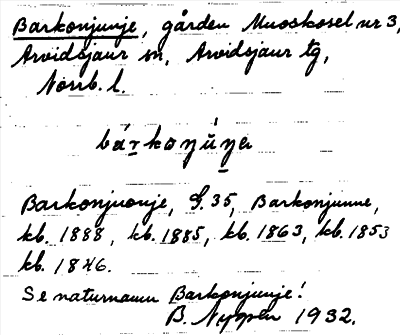 Barkonjunje, gården Muoskosel nr 3,
Arvidsjaur sn, Arvidsjaur tg,
Norrb. l.
Barkonjuonje, G. 35, Barkonjunne,
kb. 1888, kb. 1885, kb. 1863, kb. 1853
kb. 1846.
Se naturnamn Barkonjunje!
B. Nyman 1932.